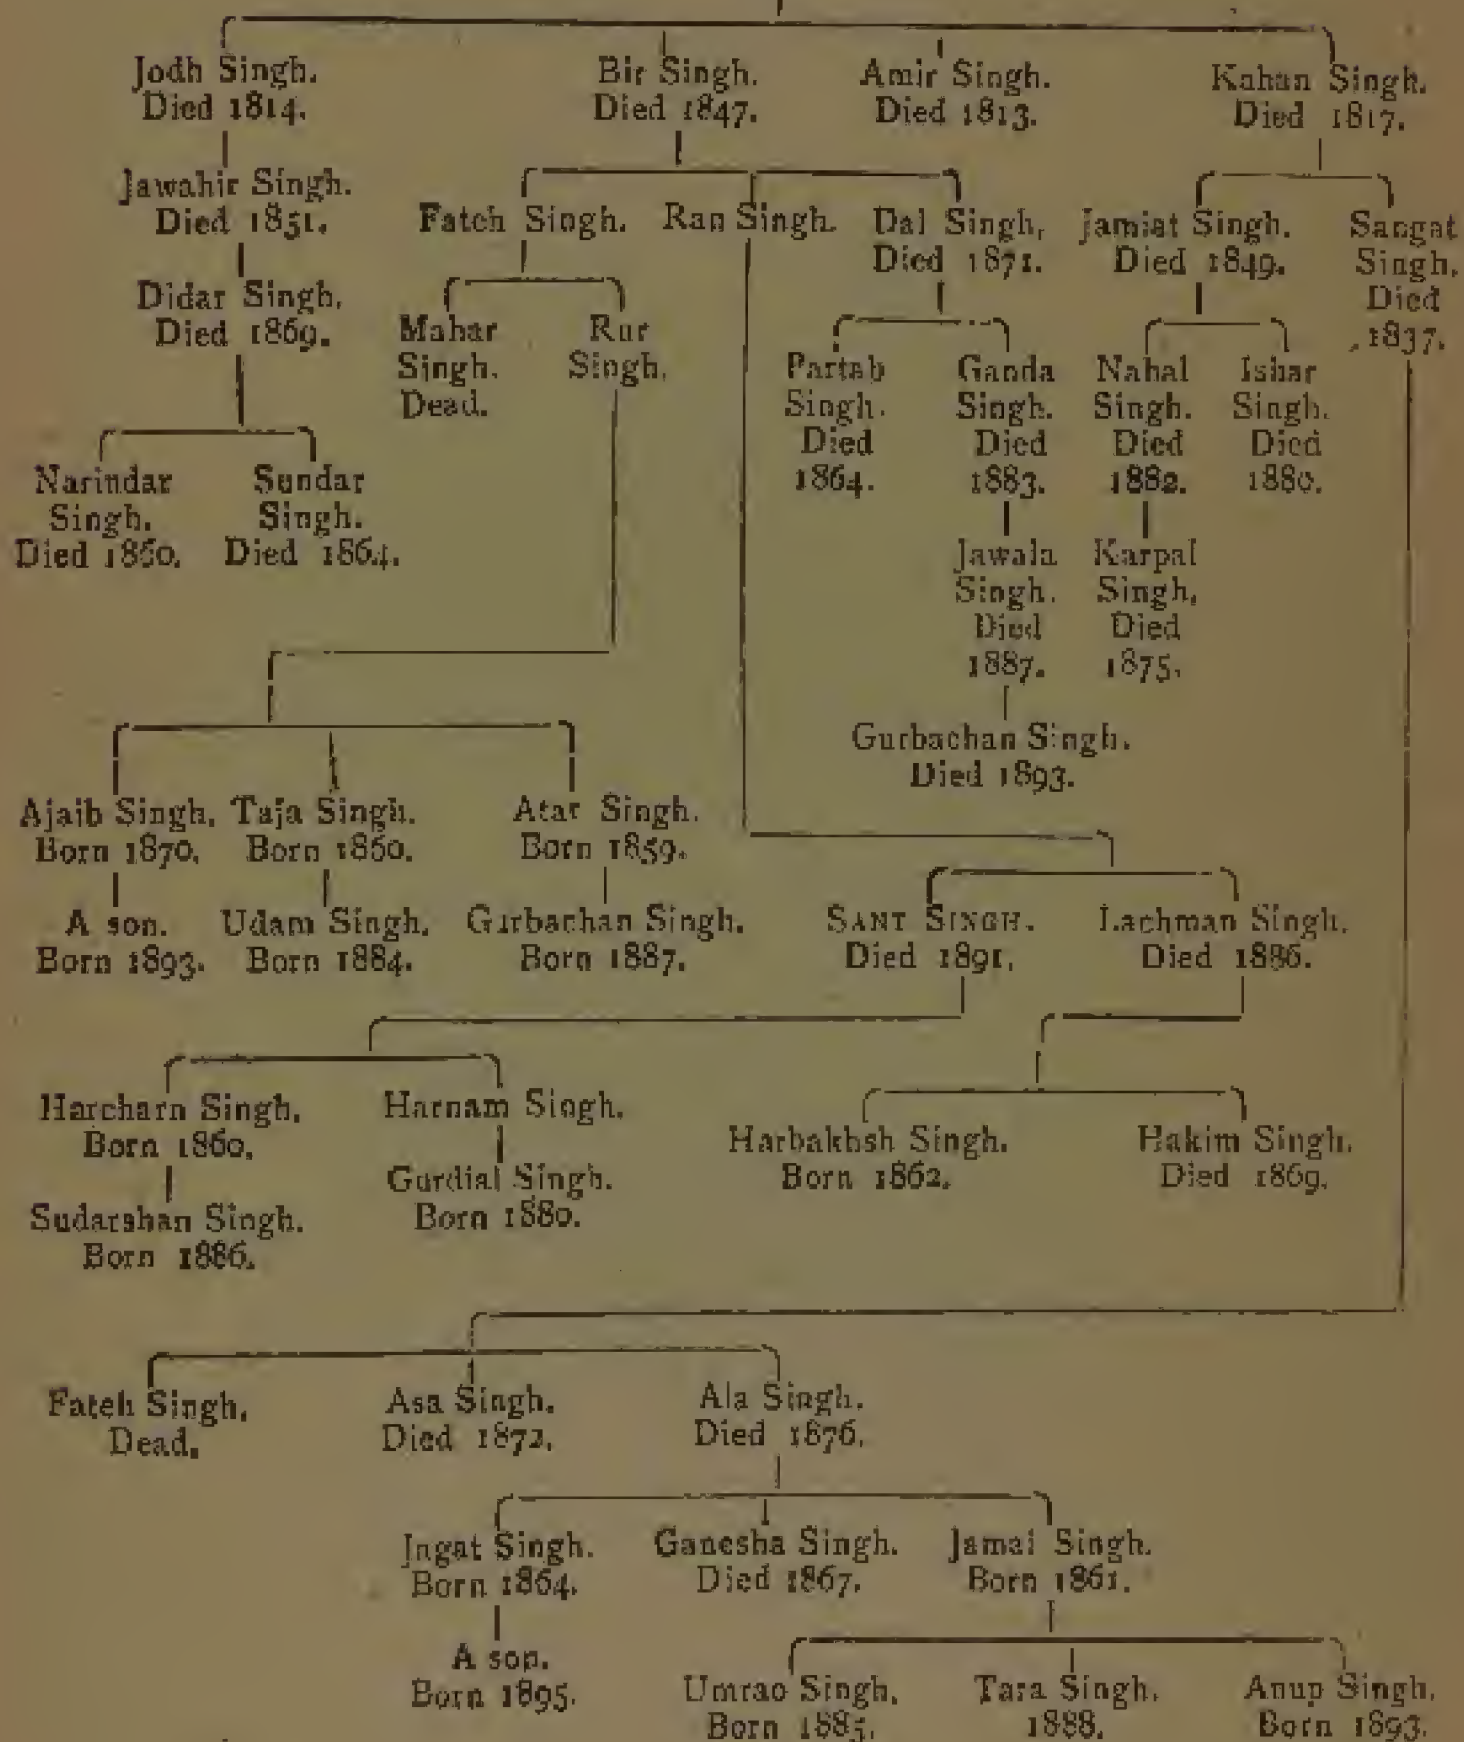 Jodh Singh.
Died 1814.
Bir Singh.
Died 1847.
Amir Singh.
Died 1813.
Kahan Singh.
Died 1817.
Jawahir Singh.
Died 1851.
Fateh Singh.
Ran Singh.
Dal Singh,
Died 1871.
Jamiat Singh.
Died 1849.
Sangat
Singh.
Died
1837.
Didar Singh.
Died 1869.
Mahar
Singh.
Dead.
Rur
Singh.
Partab
Singh.
Died
1864.
Ganda
Singh.
Died
1883.
Nahal
Singh.
Died
1882.
Ishar
Singh.
Died
1880.
Narindar
Singh.
Died 1860.
Sundar
Singh.
Died 1864.
Jawala
Singh.
Died
1887.
Karpal
Singh,
Died
1875.
Gurbachan Singh.
Died 1893.
Ajaib Singh.
Born 1870.
Taja Singh.
Born 1860.
Atar Singh.
Born 1859.
A son.
Born 1893.
Udam Singh.
Born 1884.
Girbachan Singh.
Born 1887.
SANT SINGH.
Died 1891.
Lachman Singh.
Died 1886.
Harcharn Singh.
Born 1860.
Harnam Singh.
Harbakhsh Singh.
Born 1862.
Hakim Singh.
Died 1869.
Sudarshan Singh.
Born 1886.
Gurdial Singh.
Born 1880.
Fateh Singh.
Dead.
Asa Singh.
Died 1872.
Ala Singh.
Died 1876.
Jagat Singh.
Born 1864.
Ganesha Singh.
Died 1867.
Jamai Singh.
Born 1861.
A son.
Born 1895.
Umrao Singh.
Born 1885.
Tara Singh.
1888.
Anup Singh.
Born 1893.